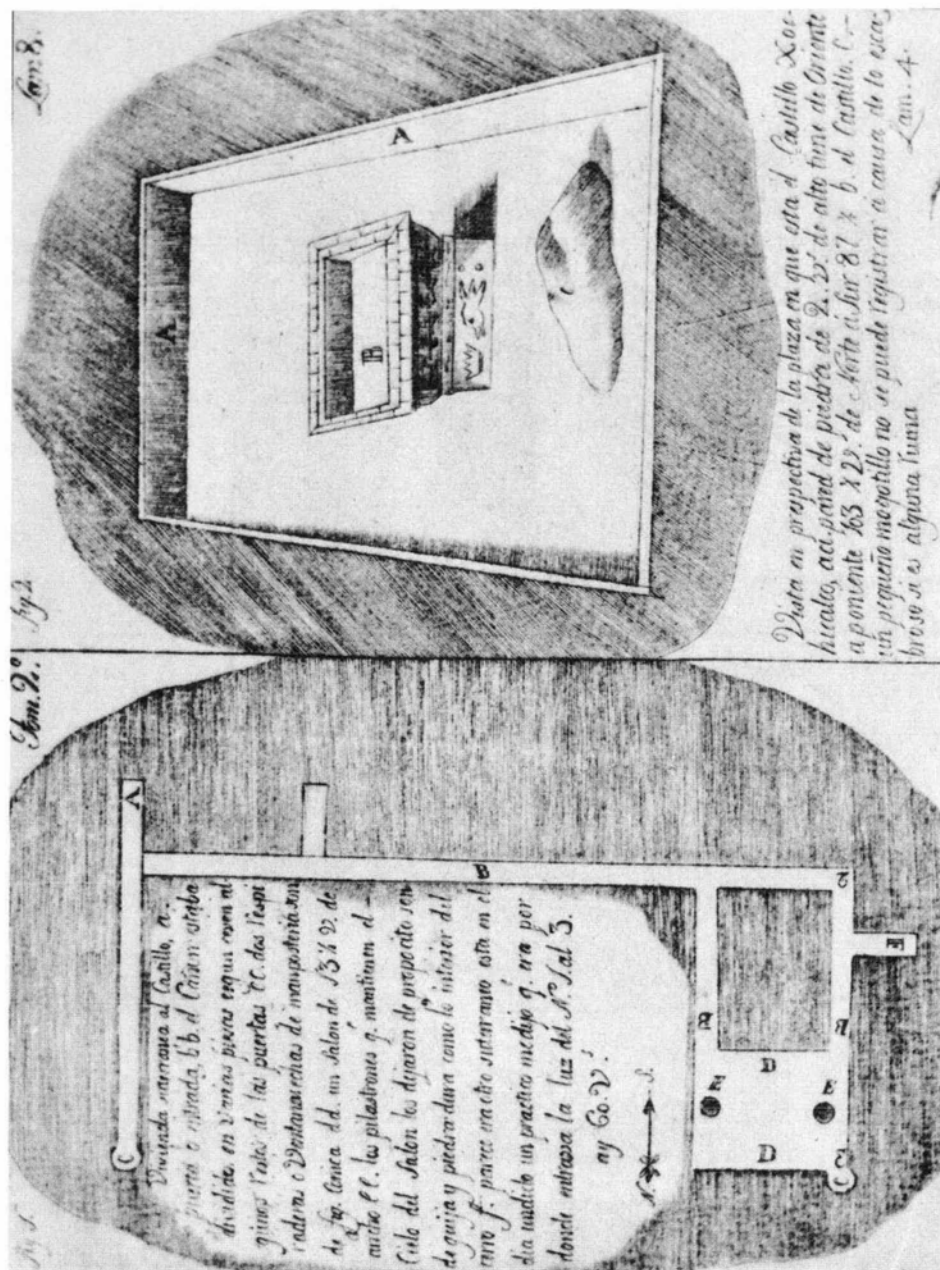 Fig. 1.
Lam. 2.ª
Vivienda subterranea al Castillo, a.
puerta o entrada, b b. el Cañon estaba
dividido, en varias piezas segun corren al
gunos restos de las puertas CC. dos respi
raderos o Ventanas echas de mamposteria son
de fig. Conica dd. un Salon de 13 ½ v.s de
ancho EE. los pilastrones q. mantienen el
Cielo del Salon los dejaron de proposito son
de guija y piedra dura como lo interior del
cerro f. parece cractro suterraneo esta en el
dia undido un practico me dijo q. era por
donde entrava la luz del N.º 1. al 3.
ay 60. V.s
N. S.
A
B
C
B
B
C
C
D
D
E
E
F
Fig. 2.
Lam. 8.
A
A
B
Vista en prospectiva de la plaza en que esta el Castillo Xo-
hicalco, a a. pared de piedra de 2. v.s de alto tiene de Oriente
a poniente 163 ½ v.s de Norte a Sur 87 ½ b. el Castillo. C.
un pequeño mogotillo no se puede registrar a causa de lo esca
broso si es alguna ruina
Lam. 4